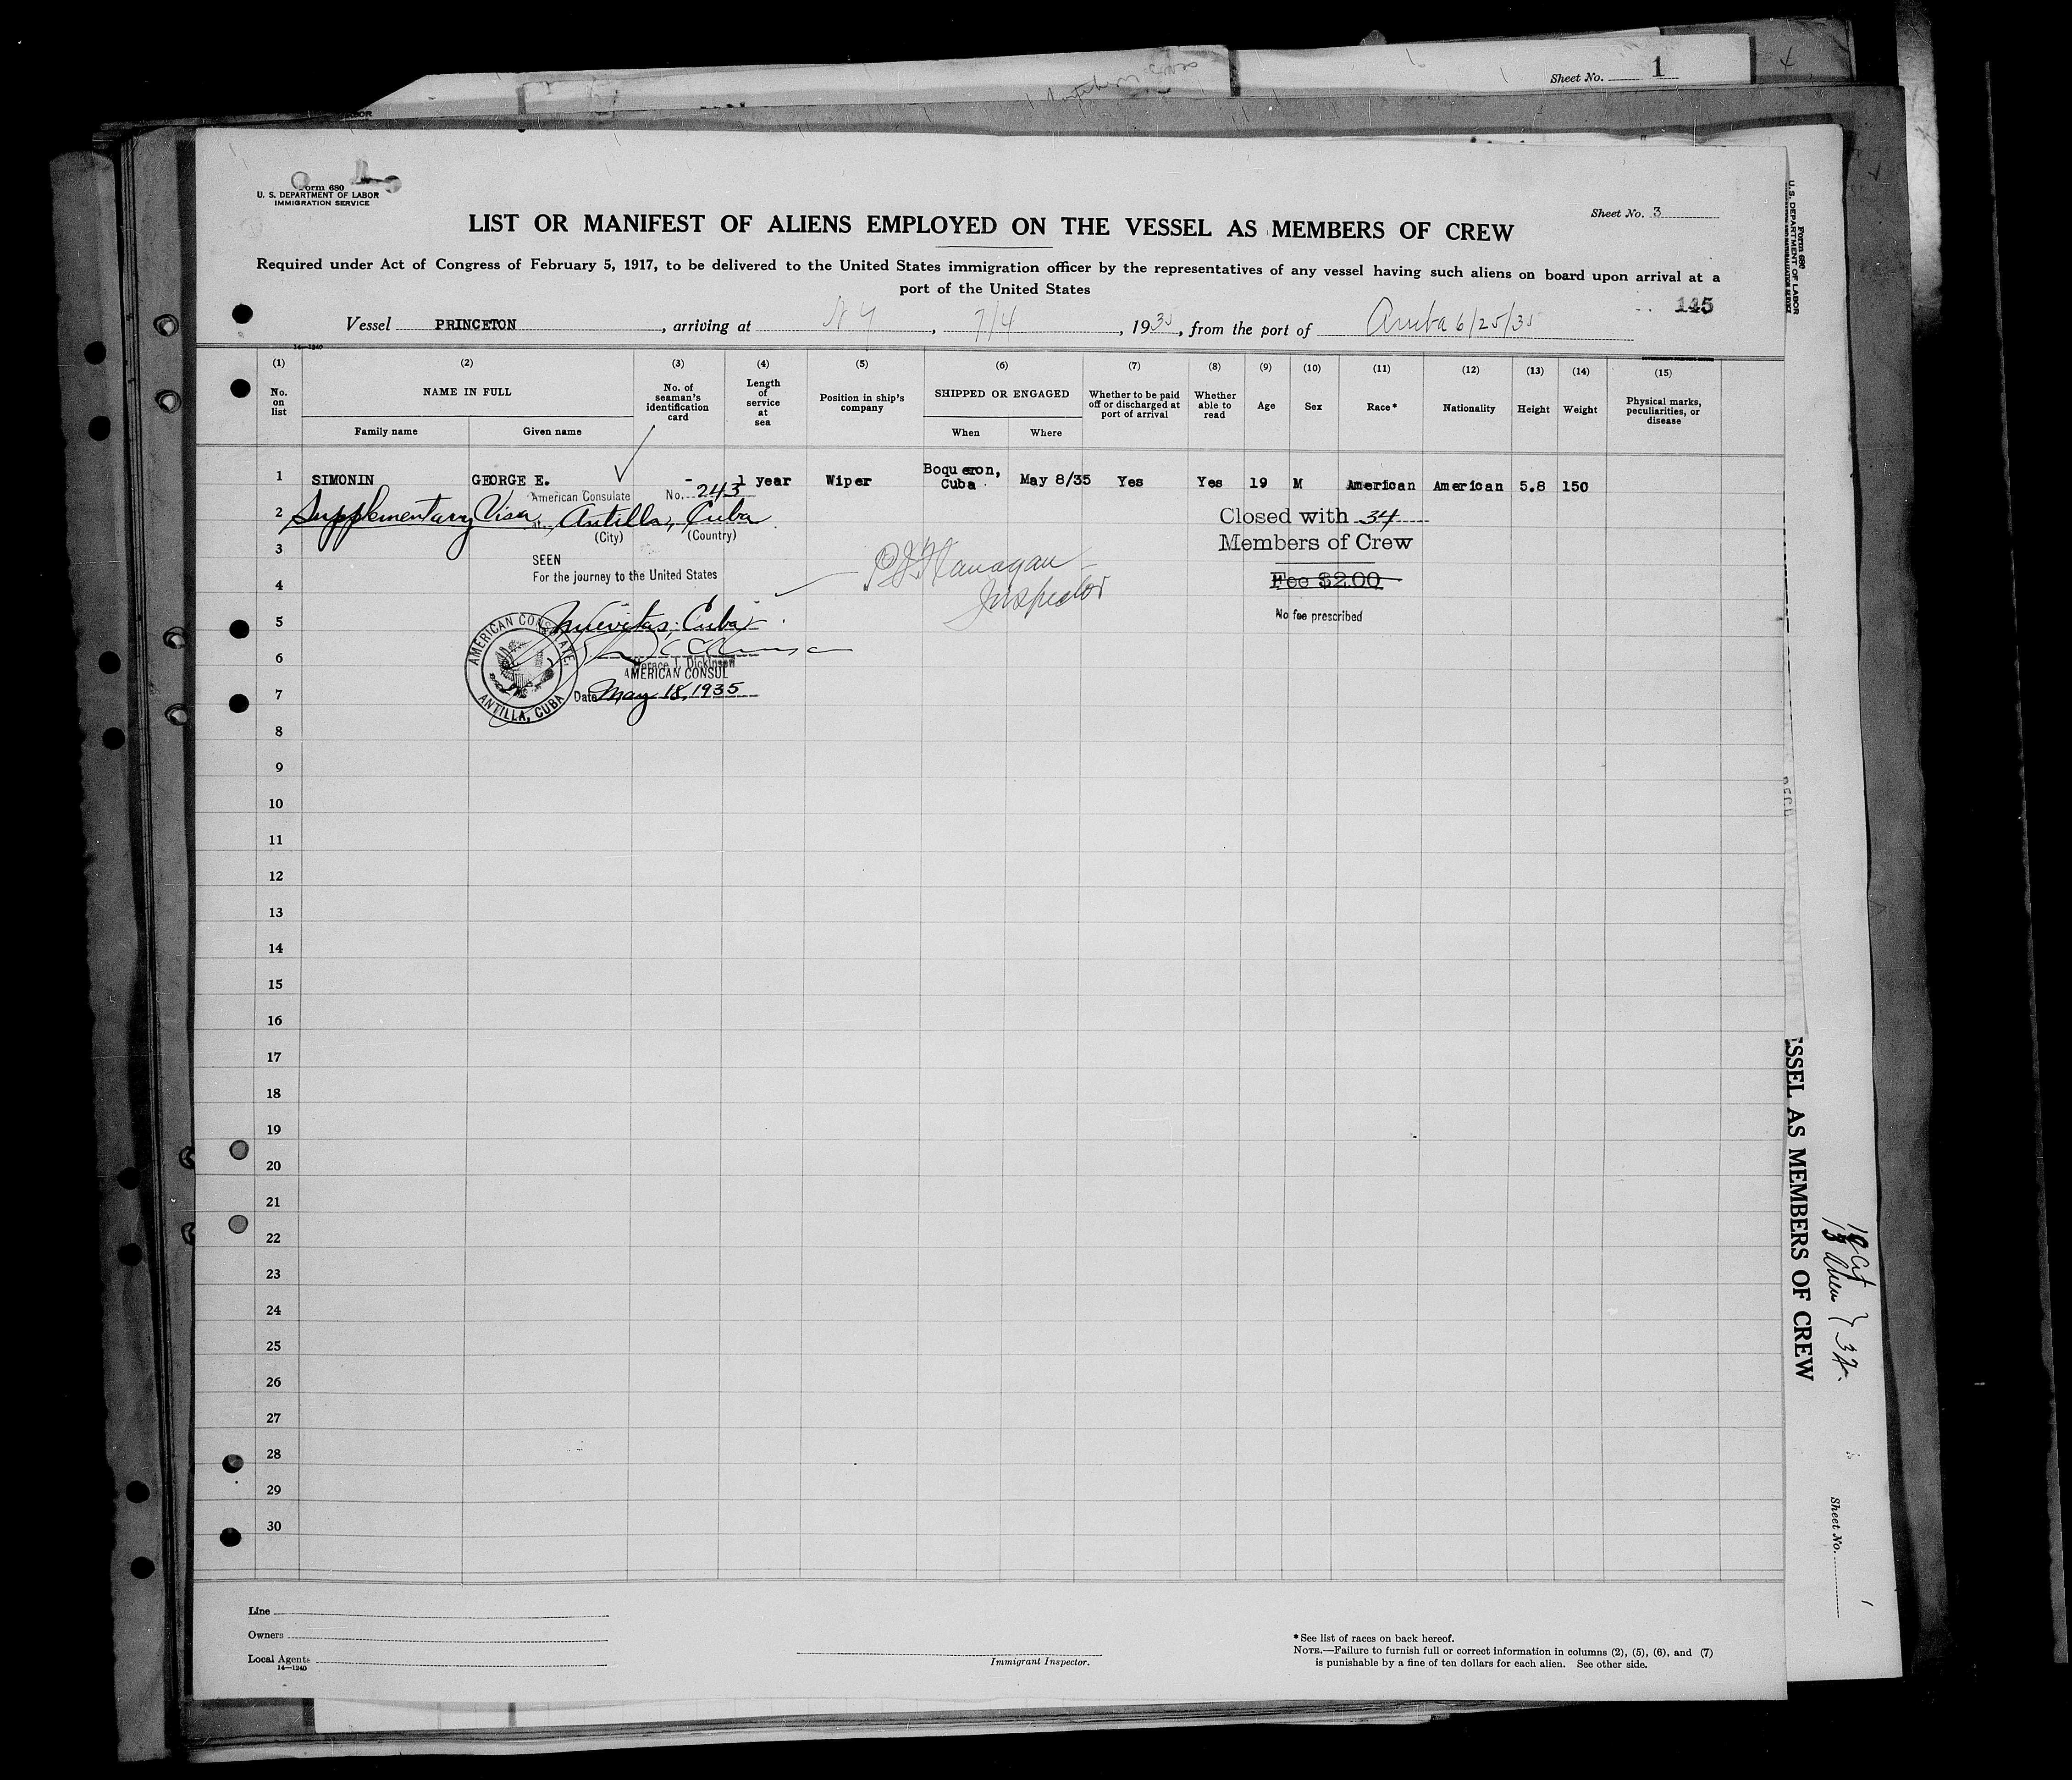 Sheet No. 1
Form 680
U. S. DEPARTMENT OF LABOR
IMMIGRATION SERVICE
Sheet No. 3
LIST OR MANIFEST OF ALIENS EMPLOYED ON THE VESSEL AS MEMBERS OF CREW
Required under Act of Congress of February 5, 1917, to be delivered to the United States immigration officer by the representatives of any vessel having such aliens on board upon arrival at a
port of the United States
145
Vessel PRINCETON, arriving at N Y, 7/4, 1935, from the port of Aruba 6/25/35
14—1240
(1) (2) (3) (4) (5) (6) (7) (8) (9) (10) (11) (12) (13) (14) (15)
No. on list
NAME IN FULL
Family name
Given name
No. of seaman's identification card
Length of service at sea
Position in ship's company
SHIPPED OR ENGAGED
When
Where
Whether to be paid off or discharged at port of arrival
Whether able to read
Age
Sex
Race*
Nationality
Height
Weight
Physical marks, peculiarities, or disease
1 SIMONIN GEORGE E. - 1 year Wiper Boqueron, Cuba. May 8/35 Yes Yes 19 M American American 5.8 150
American Consulate No. 243
2 Supplementary Visa at Antilla, Cuba
(City) (Country)
Closed with 34
Members of Crew
3
SEEN
For the journey to the United States
P.J. Flanagan
Inspector
4
Fee $2.00
No fee prescribed
5 Nuevitas, Cuba
6
Horace J. Dickinson
AMERICAN CONSUL
AMERICAN CONSULATE, ANTILLA, CUBA
7 Date May 18, 1935
8
9
10
11
12
13
14
15
16
17
18
19
20
21
22
23
24
25
26
27
28
29
30
Line
Owners
Local Agents
14—1240
Immigrant Inspector.
*See list of races on back hereof.
NOTE.—Failure to furnish full or correct information in columns (2), (5), (6), and (7)
is punishable by a fine of ten dollars for each alien. See other side.
Form 680
U. S. DEPARTMENT OF LABOR
ESSEL AS MEMBERS OF CREW
Sheet No.